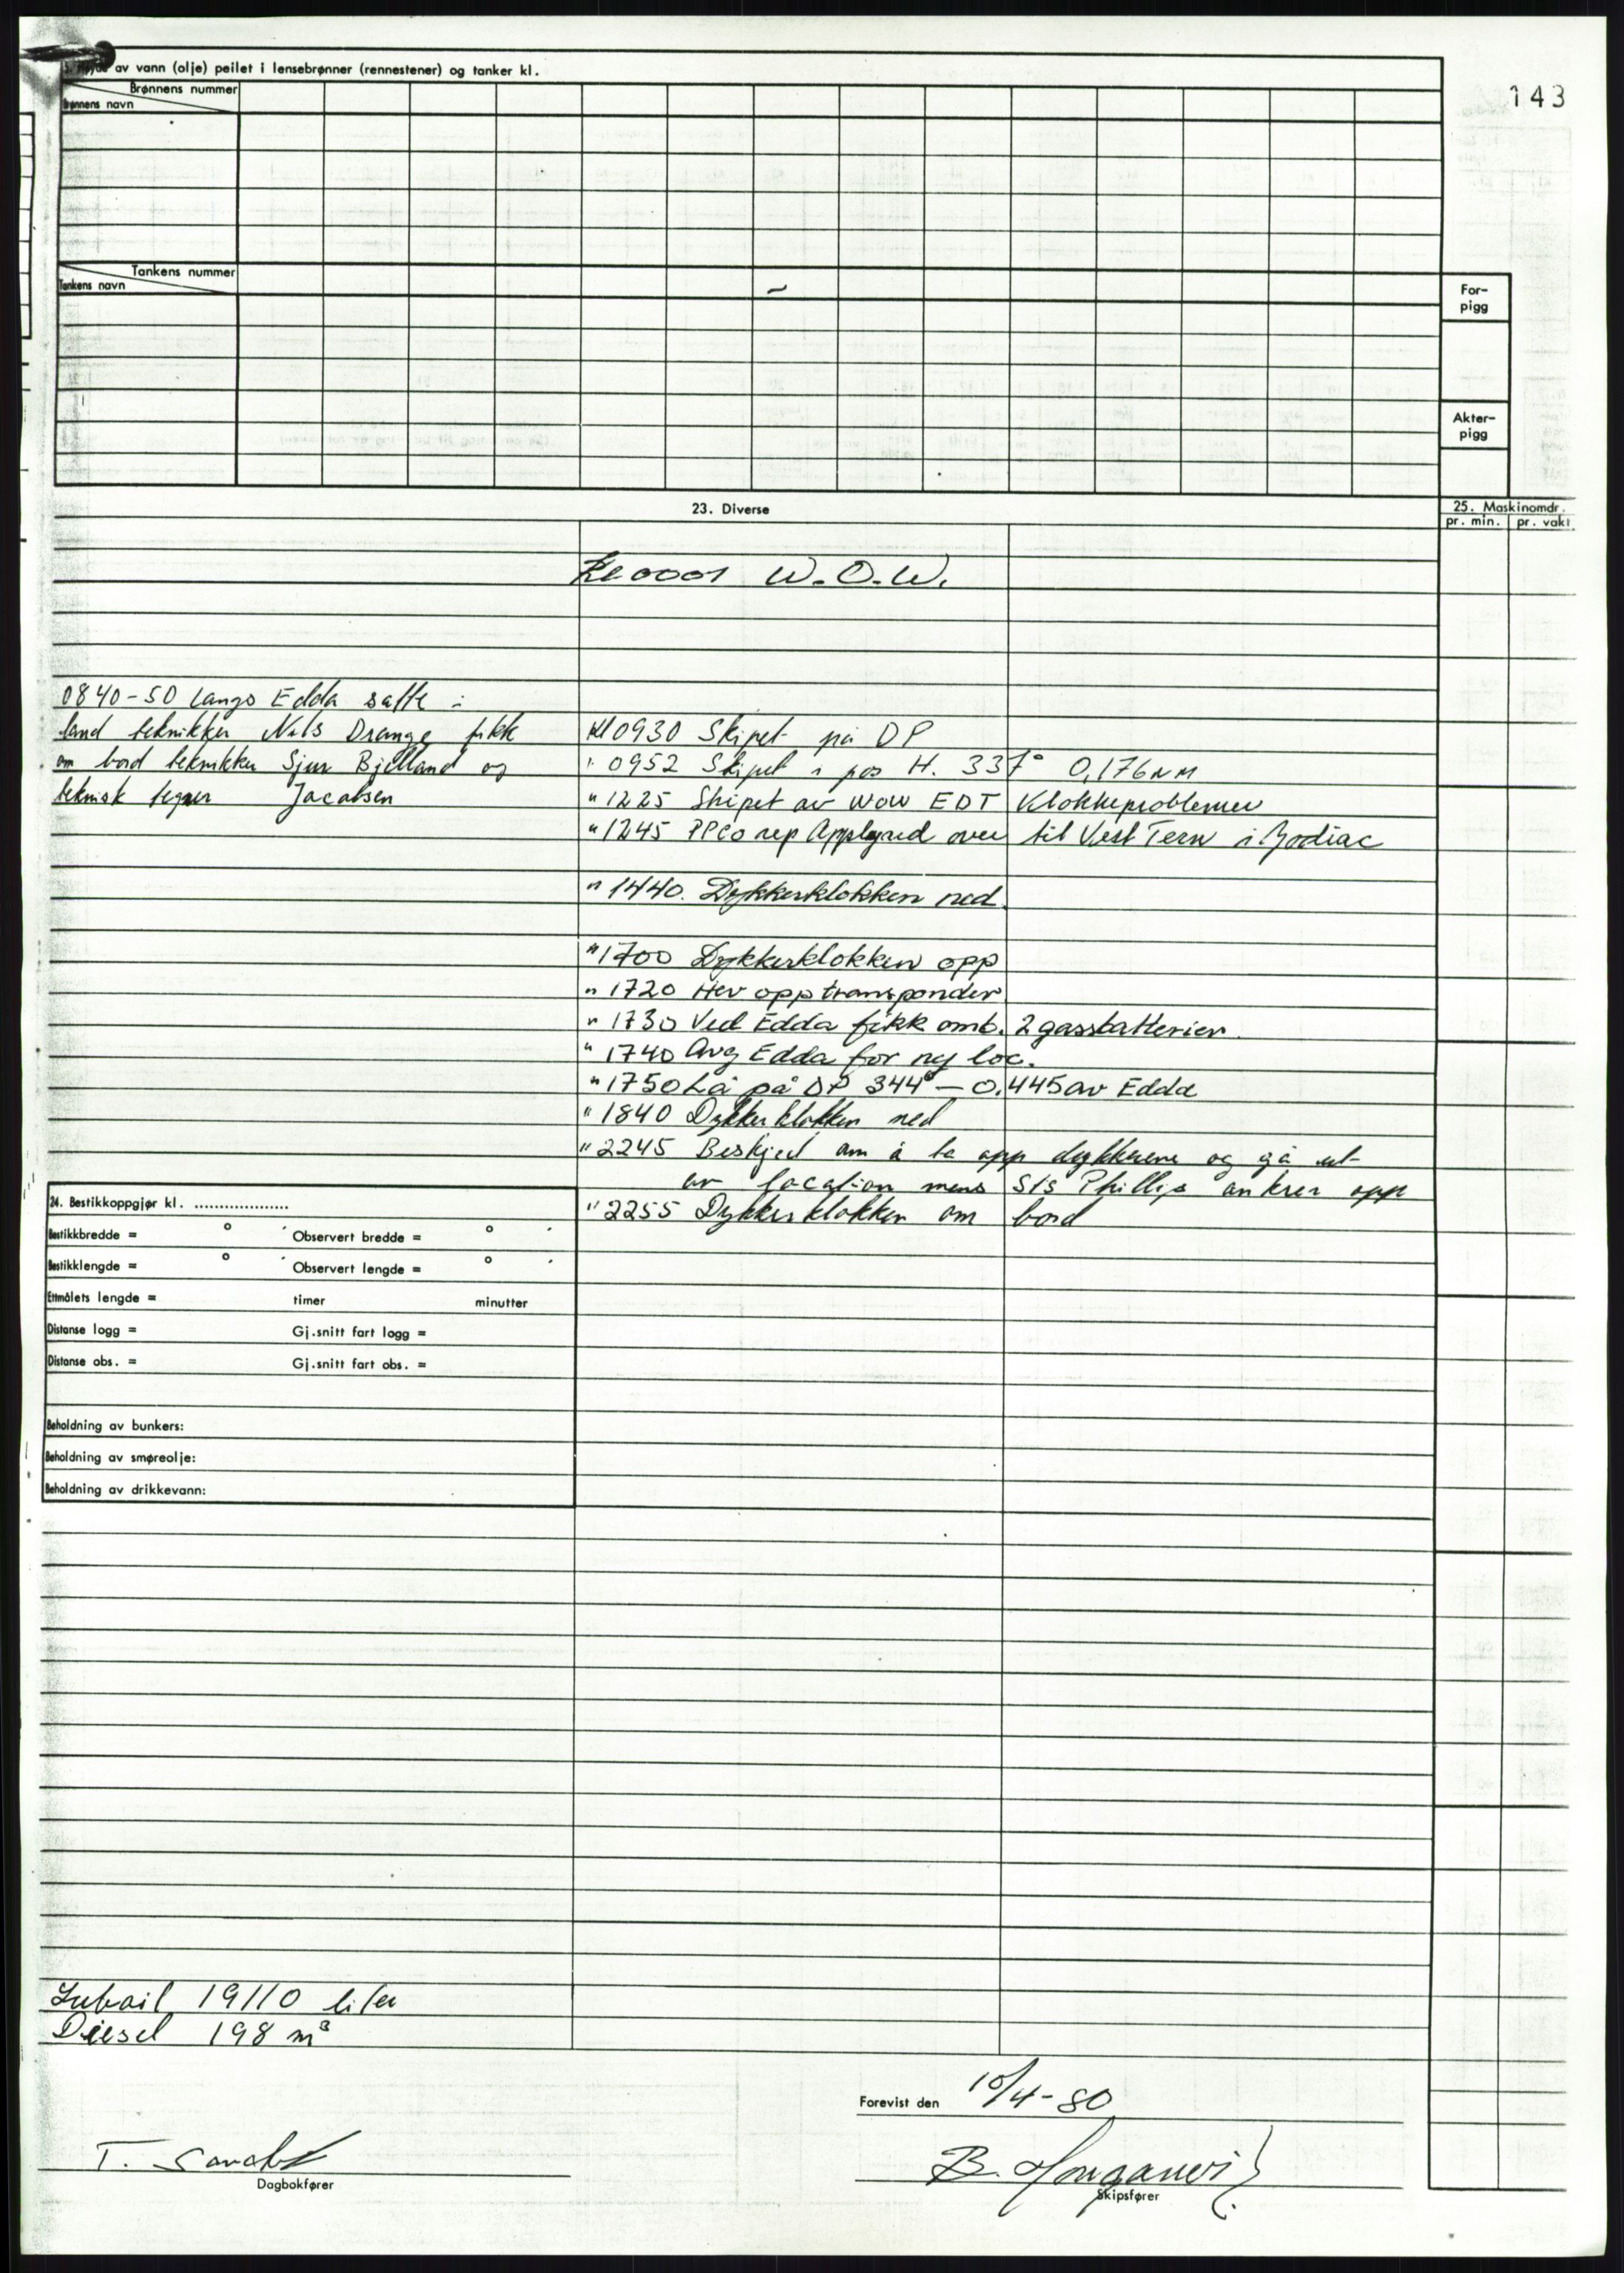 143
av vann (olje) peilet i lensebrønner (rennestener) og tanker kl.
Brønnens nummer
Brønnens navn
Tankens nummer
Tankens navn
For-
pigg
Akter-
pigg
23. Diverse
25. Maskinomdr.
pr. min. pr. vakt
Kl 0001 W.O.W.
0840-50 Langs Edda satte i
land tekniker Nils Drange fikk
om bord teknikker Sjur Bjelland og
teknisk tegner Jacobsen
Kl 0930 Skipet på DP
" 0952 Skipet i pos H. 337° 0,176 NM
" 1225 Skipet av WOW EDT Klokkeproblemer
" 1245 PPCo rep Appleyard over til Vest Tern i Zodiac
" 1440. Dykkerklokken ned.
" 1700 Dykkerklokken opp
" 1720 Hev opp transponder
" 1730 Ved Edda fikk omb. 2 gassbatterier.
" 1740 Avg Edda for ny loc.
" 1750 Lå på DP 344° — 0.445 av Edda
" 1840 Dykkerklokken ned
" 2245 Beskjed om å ta opp dykkerene og gå ut
av location mens S/S Phillips ankrer opp
" 2255 Dykkerklokken om bord
24. Bestikkoppgjør kl. ...................
Bestikkbredde = ° ' Observert bredde = ° '
Bestikklengde = ° ' Observert lengde = ° '
Ettmålets lengde = timer minutter
Distanse logg = Gj.snitt fart logg =
Distanse obs. = Gj.snitt fart obs. =
Beholdning av bunkers:
Beholdning av smøreolje:
Beholdning av drikkevann:
Luboil 19110 liter
Diesel 198 m³
Forevist den 10/4-80
T.
Dagbokfører
B.
Skipsfører